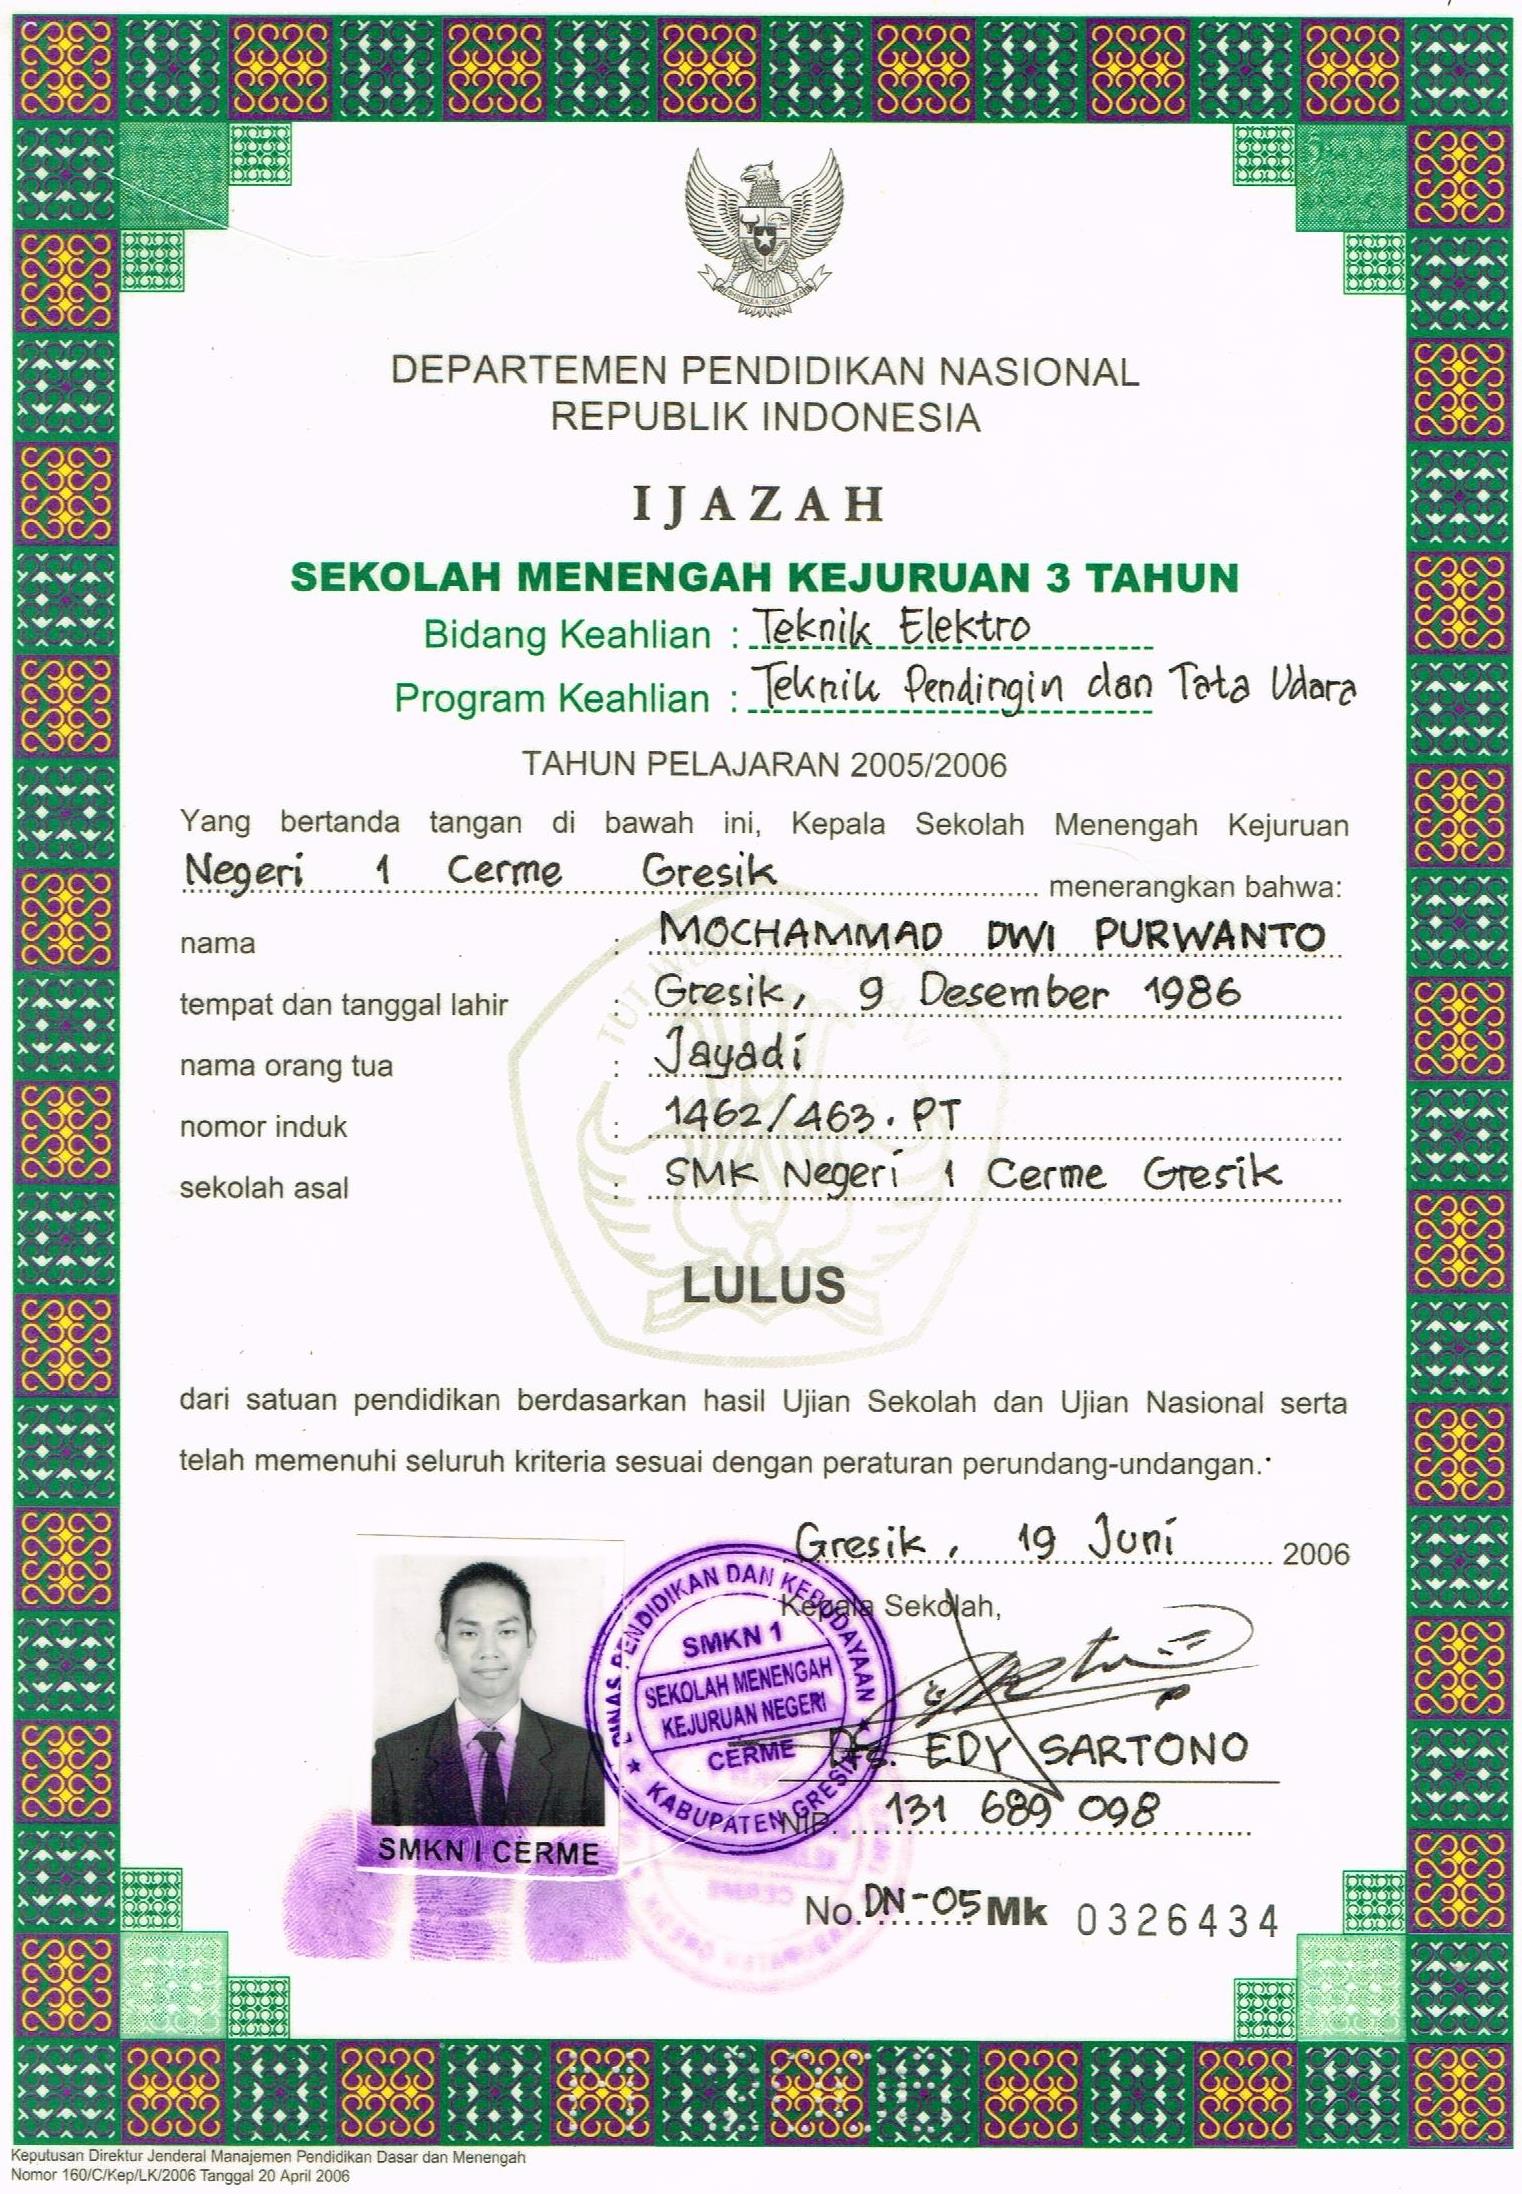 BHINNEKA TUNGGAL IKA
DEPARTEMEN PENDIDIKAN NASIONAL
REPUBLIK INDONESIA
IJAZAH
SEKOLAH MENENGAH KEJURUAN 3 TAHUN
Bidang Keahlian : Teknik Elektro
Program Keahlian : Teknik Pendingin dan Tata Udara
TAHUN PELAJARAN 2005/2006
Yang bertanda tangan di bawah ini, Kepala Sekolah Menengah Kejuruan
Negeri 1 Cerme Gresik menerangkan bahwa:
nama : MOCHAMMAD DWI PURWANTO
tempat dan tanggal lahir : Gresik, 9 Desember 1986
nama orang tua : Jayadi
nomor induk : 1462/463.PT
sekolah asal : SMK Negeri 1 Cerme Gresik
LULUS
dari satuan pendidikan berdasarkan hasil Ujian Sekolah dan Ujian Nasional serta
telah memenuhi seluruh kriteria sesuai dengan peraturan perundang-undangan.
Gresik, 19 Juni 2006
Kepala Sekolah,
DINAS PENDIDIKAN DAN KEBUDAYAAN
SMKN 1
SEKOLAH MENENGAH
KEJURUAN NEGERI
CERME
KABUPATEN GRESIK
Drs. EDY SARTONO
NIP. 131 689 098
SMKN I CERME
No. DN-05 Mk 0326434
Keputusan Direktur Jenderal Manajemen Pendidikan Dasar dan Menengah
Nomor 160/C/Kep/LK/2006 Tanggal 20 April 2006